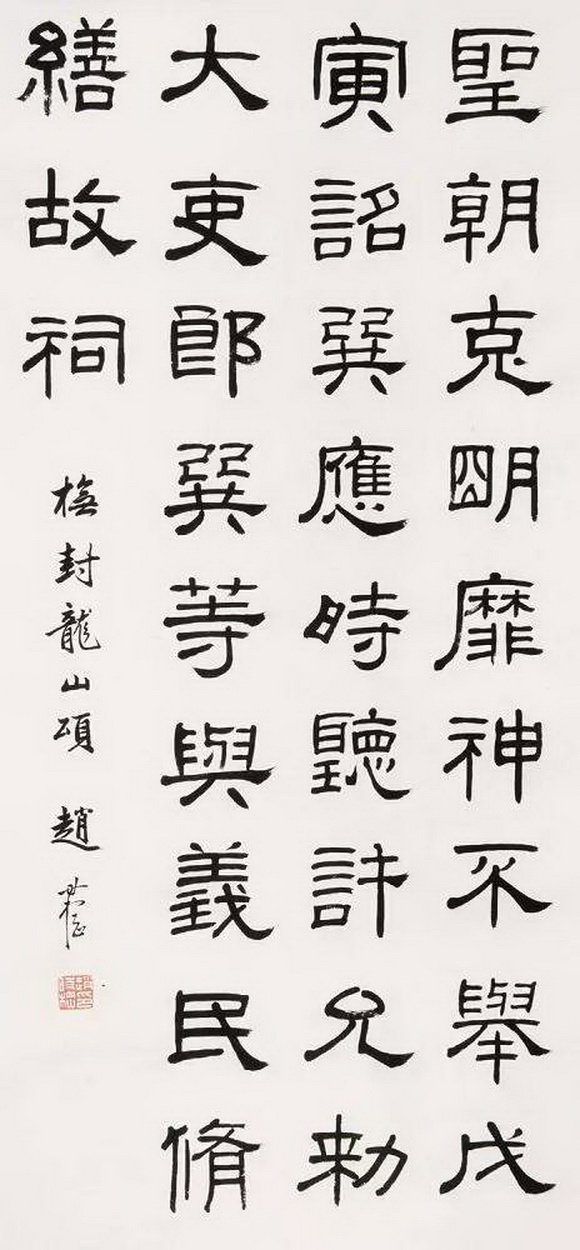 聖朝克朙靡神不舉戊
寅詔巽應時聽許允勑
大吏郎巽等與義民脩
繕故祠
橅封龍山頌 趙